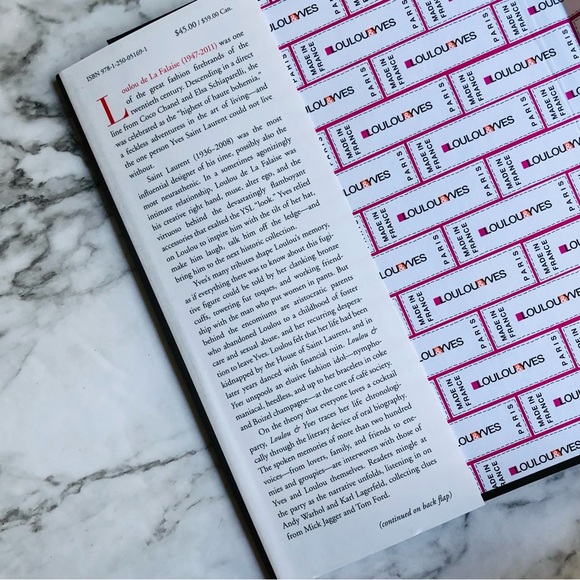 ISBN 978-1-250-05169-1
$45.00 / $59.00 Can.
Loulou de La Falaise (1947-2011) was one
of the great fashion firebrands of the
twentieth century. Descending in a direct
line from Coco Chanel and Elsa Schiaparelli, she
was celebrated as the “highest of haute bohemia,”
a feckless adventuress in the art of living—and
the one person Yves Saint Laurent could not live
without.
Saint Laurent (1936–2008) was the most
influential designer of his time, possibly also the
most neurasthenic. In a sometimes agonizingly
intimate relationship, Loulou de La Falaise was
his creative right hand, muse, alter ego, and the
virtuoso behind the devastatingly flamboyant
accessories that exalted the YSL “look.” Yves relied
on Loulou to inspire him with the tilt of her hat,
make him laugh, talk him off the ledge—and
bring him to the next historic collection.
Yves’ many tributes shape Loulou’s memory,
as if everything there was to know about this fugi-
tive figure could be told by her clanking bronze
cuffs, towering fur toques, and working friend-
ship with the man who put women in pants. But
behind the encomiums are aristocratic parents
who abandoned Loulou to a childhood of foster
care and sexual abuse, and her recurring despera-
tion to leave Yves. Loulou felt that her life had been
kidnapped by the House of Saint Laurent, and in
later years danced with financial ruin. Loulou &
Yves unspools an elusive fashion idol—nympho-
maniacal, heedless, and up to her bracelets in coke
and Boizel champagne—at the core of café society.
On the theory that everyone loves a cocktail
party, Loulou & Yves traces her life chronologi-
cally through the literary device of oral biography.
The spoken memories of more than two hundred
voices—from lovers, family, and friends to ene-
mies and groupies—are interwoven with those of
Yves and Loulou themselves. Readers mingle at
the party as the narrative unfolds, listening in on
Andy Warhol and Karl Lagerfeld, collecting clues
from Mick Jagger and Tom Ford.
(continued on back flap)
MADE IN
FRANCE
LOULOU&YVES
PARIS